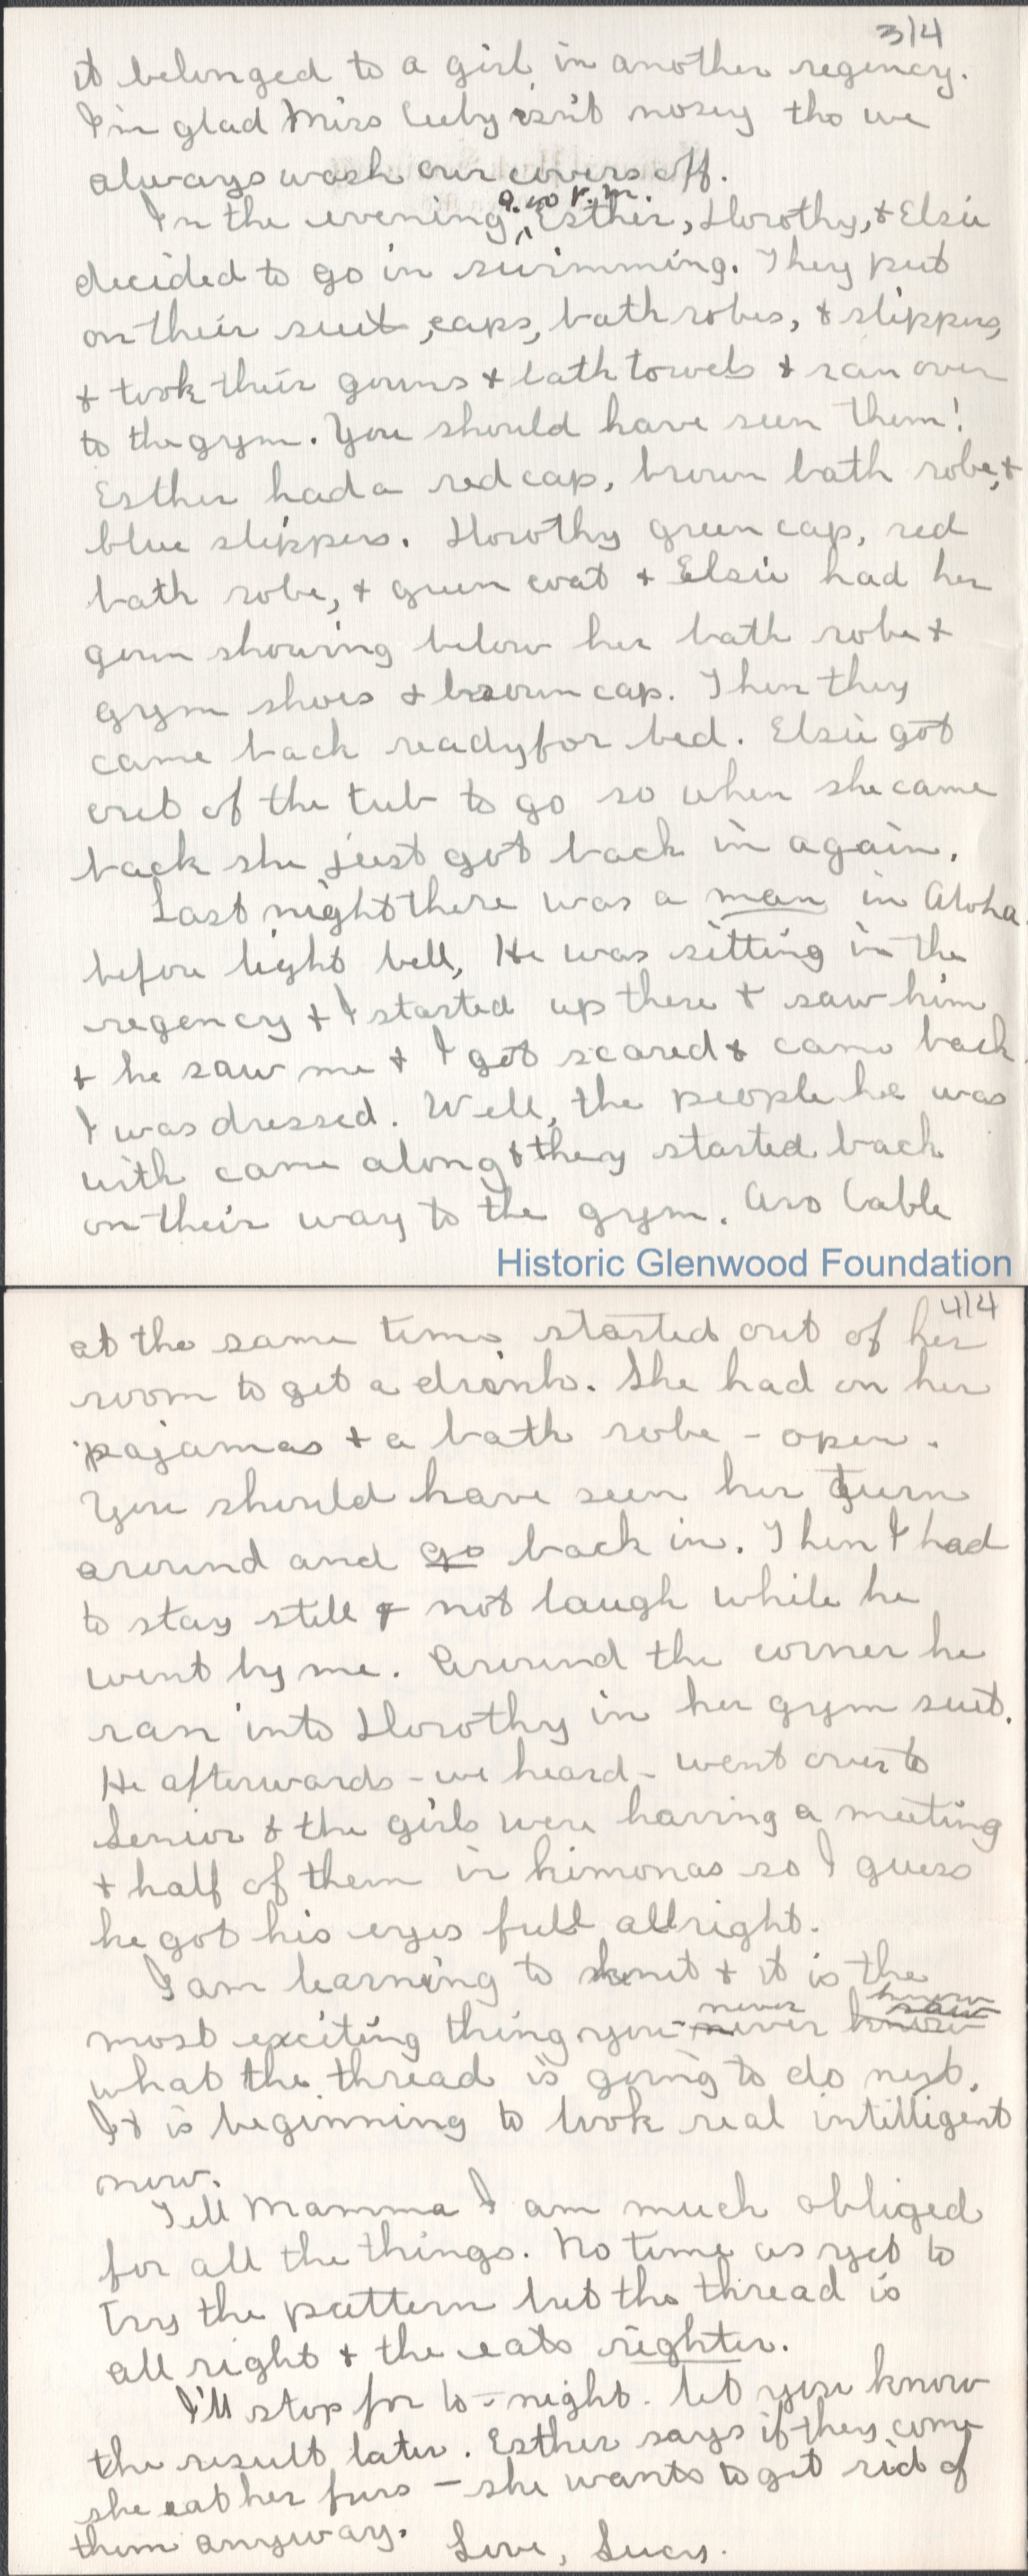 3/4
it belonged to a girl in another regency.
I'm glad Miss Ceeby isn't nosey tho we
always wash our covers off.
9.40 P.M.
In the evening ^ Esther, Dorothy, + Elsie
decided to go in swimming. They put
on their suit, caps, bath robes, + slippers,
+ took their gowns + bath towels + ran over
to the gym. You should have seen them!
Esther had a red cap, brown bath robe, +
blue slippers. Dorothy green cap, red
bath robe, + green coat + Elsie had her
gown showing below her bath robe +
gym shoes + brown cap. Then they
came back ready for bed. Elsie got
out of the tub to go so when she came
back she just got back in again.
Last night there was a man in Aloha
before light bell, He was sitting in the
regency + I started up there + saw him
+ he saw me + I got scared + came back.
I was dressed. Well, the people he was
with came along + they started back
on their way to the gym. Avo Cable
Historic Glenwood Foundation
4/4
at the same time started out of her
room to get a drink. She had on her
pajamas + a bath robe - open.
You should have seen her turn
around and go back in. Then I had
to stay still + not laugh while he
went by me. Around the corner he
ran into Dorothy in her gym suit.
He afterwards - we heard - went over to
Senior + the girls were having a meeting
+ half of them in kimonas so I guess
he got his eyes full allright.
I am learning to knit + it is the
know
never saw
most exciting thing you never know
what the thread is going to do next.
It is beginning to look real intilligent
now.
Tell Mamma I am much obliged
for all the things. No time as yet to
try the pattern but the thread is
all right + the eats righter.
I'll stop for to-night. let you know
the result later. Esther says if they come
she eat her furs - she wants to get rid of
them anyway.
Love, Lucy.